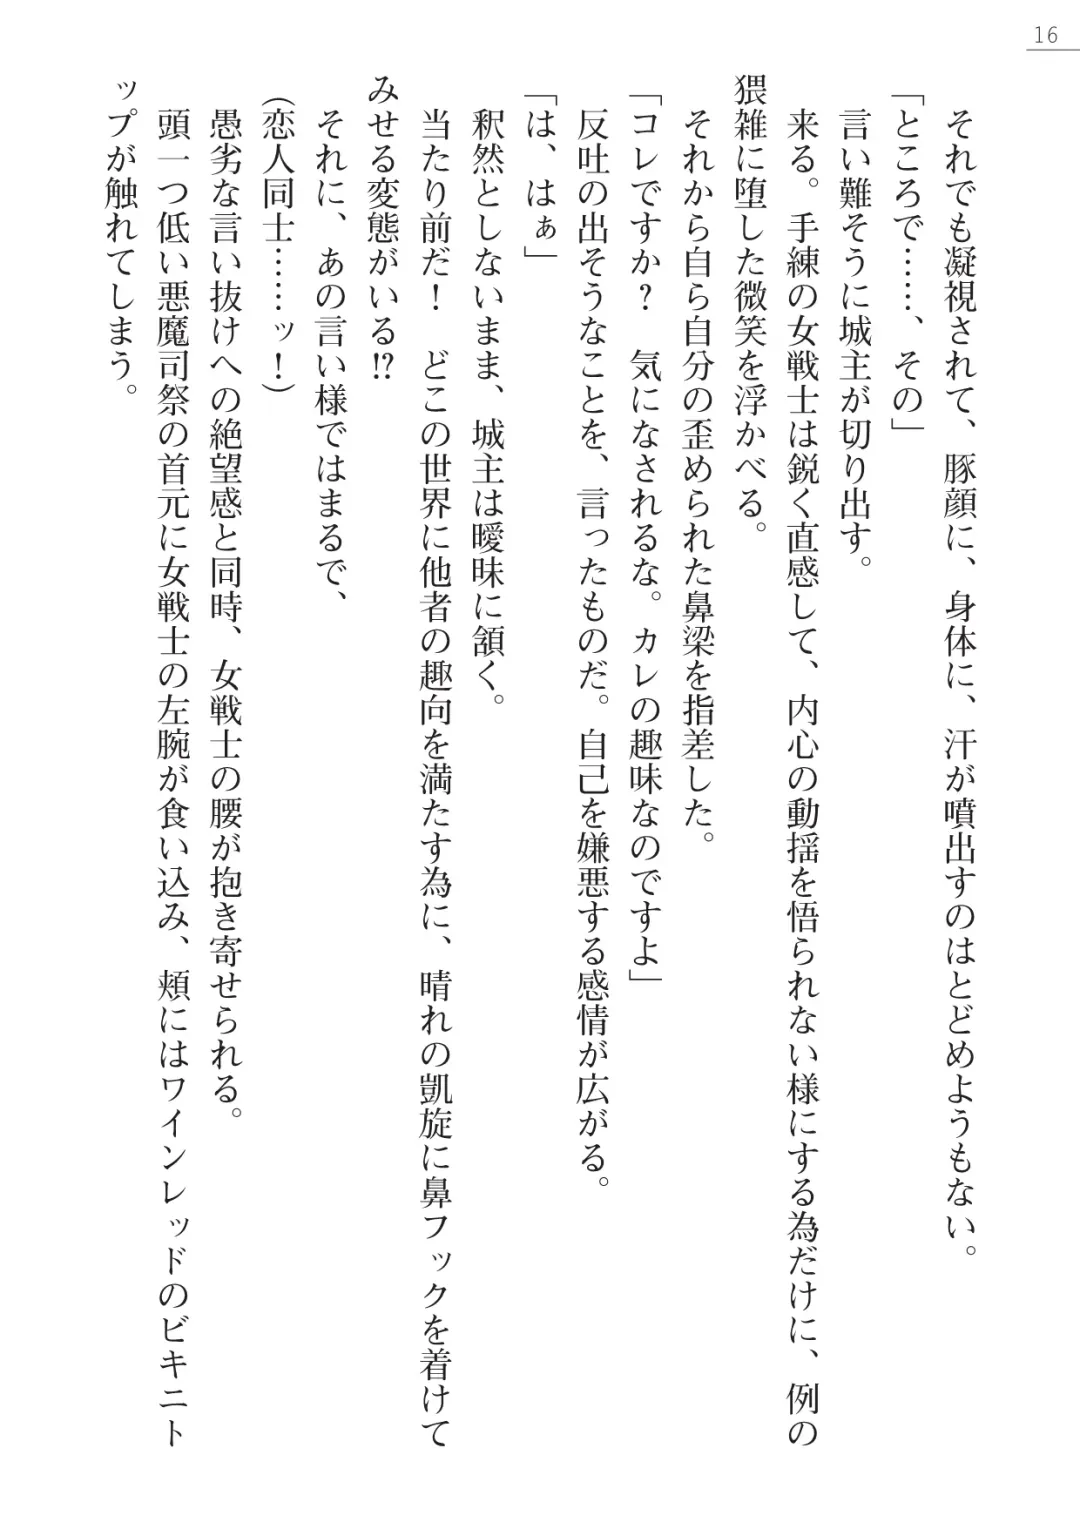 16
それでも凝視されて、豚顔に、身体に、汗が噴出すのはとどめようもない。
「ところで……、その」
言い難そうに城主が切り出す。
来る。手練の女戦士は鋭く直感して、内心の動揺を悟られない様にする為だけに、例の
猥雑に堕した微笑を浮かべる。
それから自ら自分の歪められた鼻梁を指差した。
「コレですか？　気になされるな。カレの趣味なのですよ」
反吐の出そうなことを、言ったものだ。自己を嫌悪する感情が広がる。
「は、はぁ」
釈然としないまま、城主は曖昧に頷く。
当たり前だ！　どこの世界に他者の趣向を満たす為に、晴れの凱旋に鼻フックを着けて
みせる変態がいる⁉
それに、あの言い様ではまるで、
（恋人同士……ッ！）
愚劣な言い抜けへの絶望感と同時、女戦士の腰が抱き寄せられる。
頭一つ低い悪魔司祭の首元に女戦士の左腕が食い込み、頬にはワインレッドのビキニト
ップが触れてしまう。